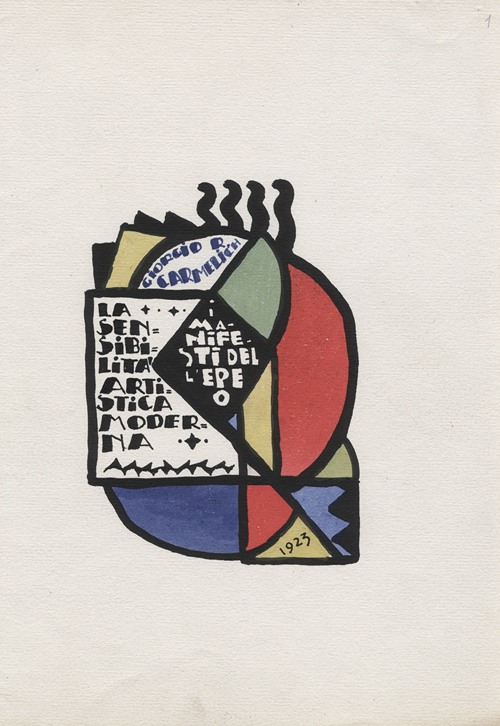 1
GIORGIO R.
CARMELICH
LA
SEN=
SIBI=
LITA'
ARTI=
STICA
MODER=
NA
i
MA-
NIFE-
STI DEL
L'EPE
O
1923